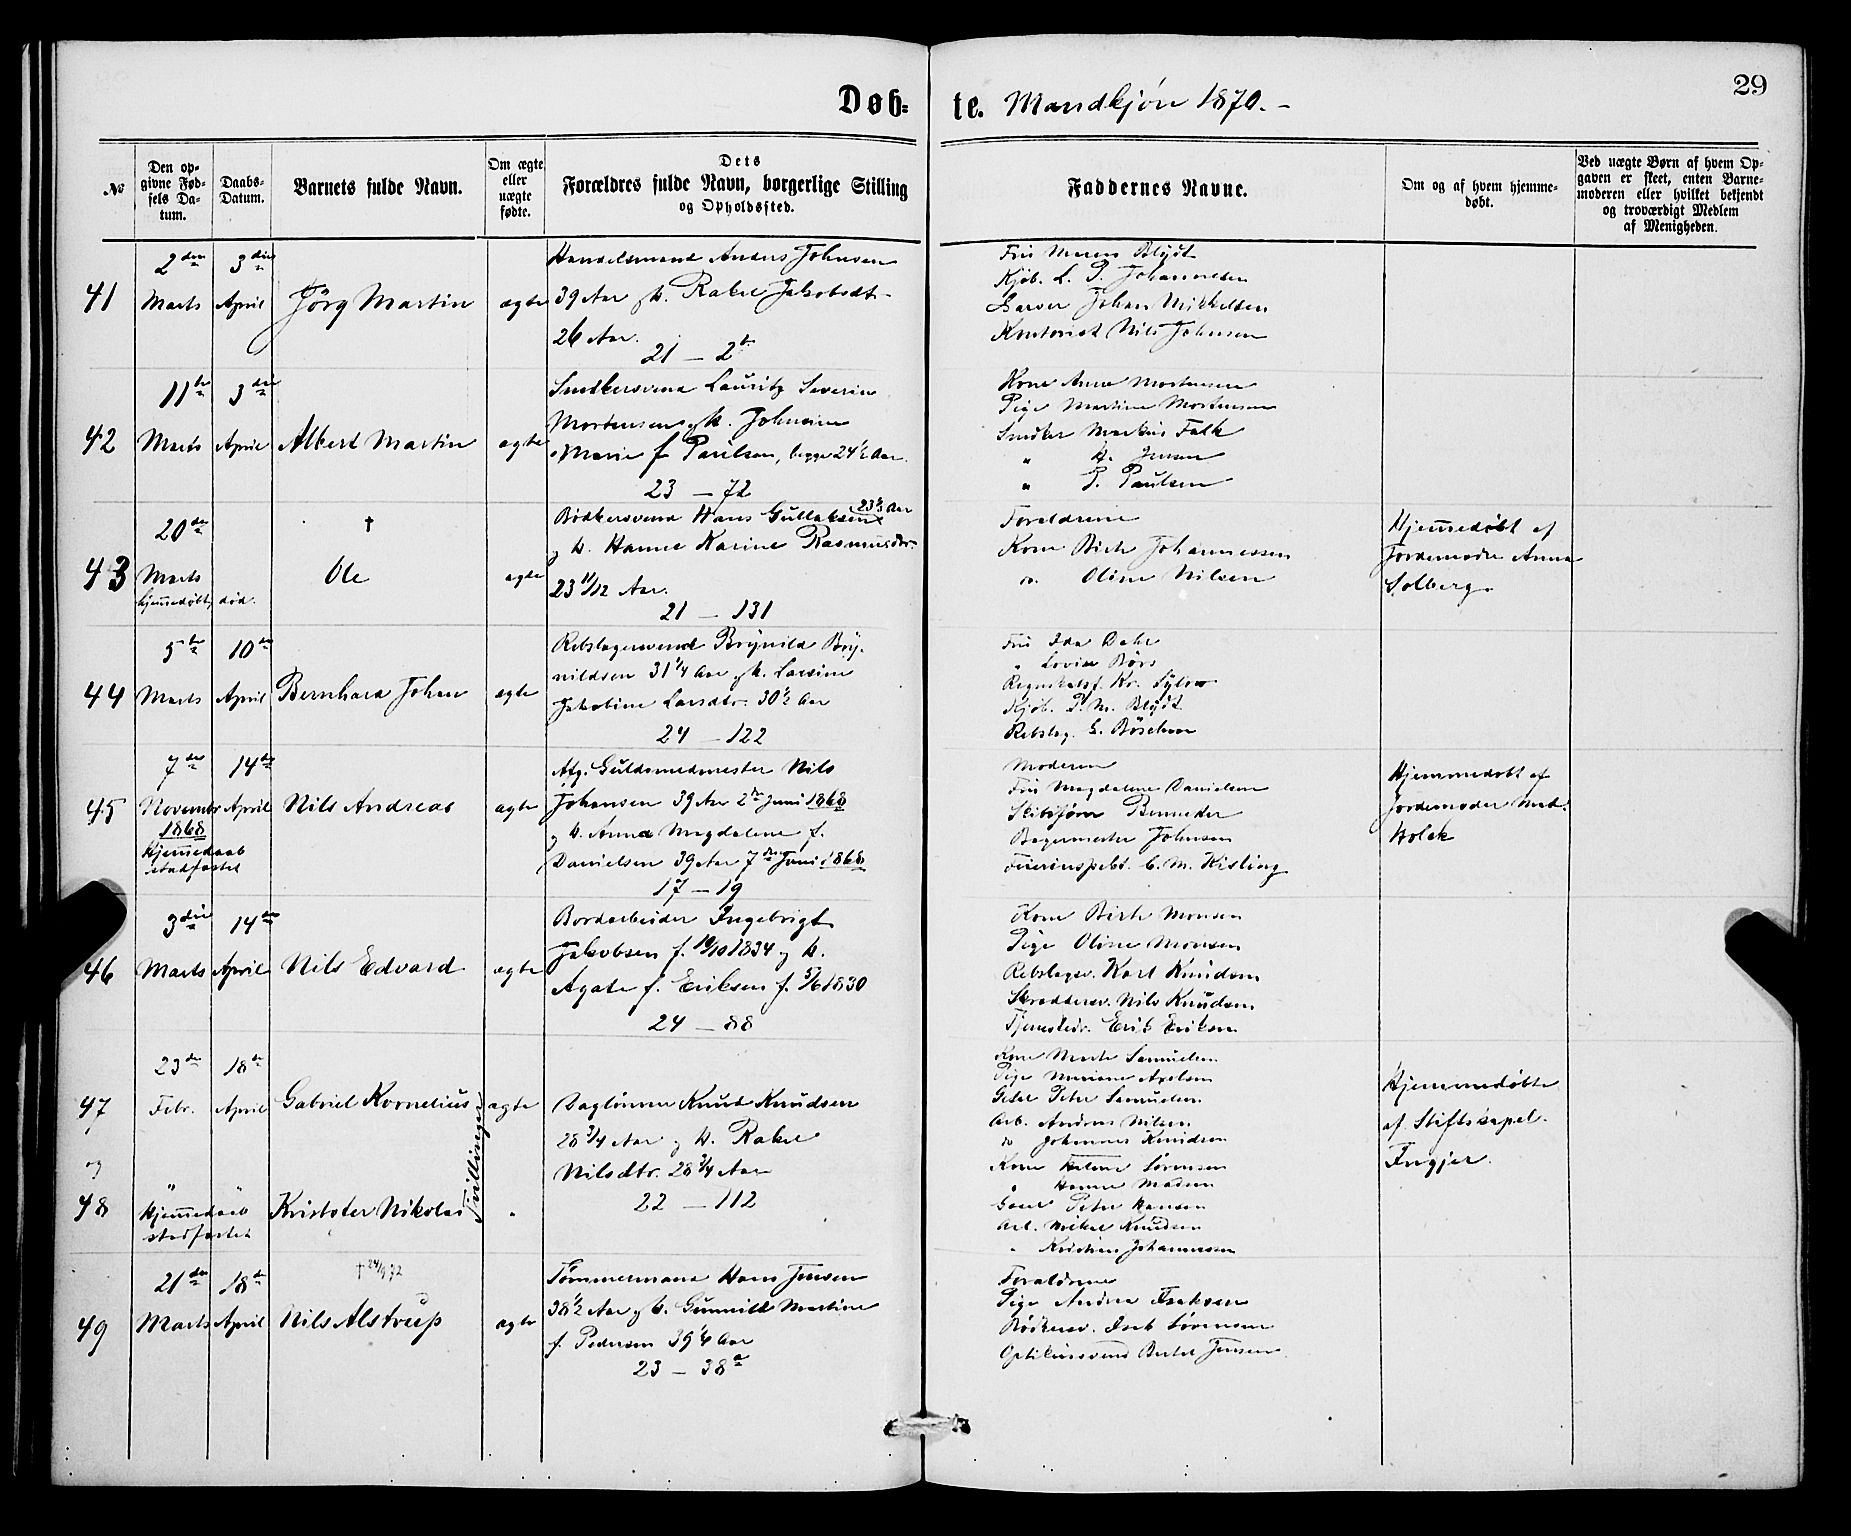 29
Døb=te. Mandkjøn 1870.-
No
Den op-
givne Fød-
sels Da-
tum.
Daabs-
Datum.
Barnets fulde Navn.
Om ægte
eller
uægte
fødte.
Dets
Forældres fulde Navn, borgerlige Stilling
og Opholdssted.
Faddernes Navne.
Om og af hvem hjemme-
døbt.
Ved uægte Børn af hvem Op-
gaven er skeet, enten Barne-
moderen eller hvilket bekjendt
og troværdigt Medlem
af Menigheden.
41
2den
Marts
3die
April
Jörg Martin
ægte
Handelsmand Anders Johnsen
39 Aar og H. Rakel Jakobsdtr.
26 Aar.
21 - 2b
Fru Maren Blydt
Kjöb. L. P. Johannesen
Garver Johan Mikkelsen
Kontorist Nils Johnsen
42
11te
Marts
3die
April
Albert Martin
ægte
Snedkersvend Lauritz Severin
Mortensen og H. Johnsine
Marie f. Paulsen, begge 24½ Aar.
23 - 72
Kone Anna Mortensen
Pige Martine Mortensen
Snedker Markus Falk
" H. Jensen
" P. Paulsen
43
20de
Marts
hjemmedøbt, død.
†
Ole
ægte
Bödkersvend Hans Gullaksen 23 Aar
og H. Hanne Karine Rasmusdtr.
23 11/12 Aar.
21 - 131
Forældrene
Kone Birte Johannessen
do. Oline Nilsen
Hjemmedøbt af
Jordemodre Anna
Solberg.
44
5te
Marts
10de
April
Bernhard Johan
ægte
Rebslagersvend Brynild Bry-
nildsen 31¼ Aar og H. Larsine
Jakobine Larsdtr. 30½ Aar
24 - 122
Fru Ida Dahl
" Lovise Börs
Regnskabsf. Kr. Sylow
Kjöb. P. M. Blydt
Rebslag. G. Böschen
45
7de
November
1868
Hjemmedaab
stadfæstet
14de
April
Nils Andreas
ægte
Afg. Guldsmedmester Nils
Johansen 39 Aar 2den Juni 1868
og H. Anna Magdalene f.
Danielsen 39 Aar 7de Juni 1868
17 - 19
Moderen
Fru Magdalene Danielsen
Skibsfører Benneder
Bagermester Johnsen
Feierinspekt. C. M. Kisling
Hjemmedøbt af
Jordemoder Mad.
Holck
46
3die
Marts
14de
April
Nils Edvard
ægte
Bordarbeider Ingebrigt
Jakobsen f. 19/10 1834 og H.
Agate f. Eriksen f. 5/6 1830
24 - 88
Kone Birte Monsen
Pige Oline Monsen
Rebslagersv. Karl Knudsen
Skræddersv. Nils Knudsen
Tjenestedr. Erik Eriksen
47
23de
Febr.
18de
April
Gabriel Kornelius
ægte
og
48
"
"
Hjemmedaab
stadfæstet
Kristofer Nikolai
"
Tvillinger
Daglönner Knud Knudsen
28¾ Aar og H. Rakel
Nilsdtr. 28¾ Aar
22 - 112
Kone Marte Samuelsen
Pige Mariane Axelsen
Gesel Peter Samuelsen
Arb. Andreas Nilsen
do Johannes Knudsen
Kone Helene Sörensen
" Hanne Madsen
Gesel Peter Hansen
Arb. Mikal Knudsen
" Kristian Johannessen
Hjemmedøbte
af Stiftskapel.
Irgjer.
49
21de
Marts
18de
April
† 24/9 72
Nils Alstrup
ægte
Tömmermand Hans Jensen
38½ Aar og H. Gunnild Martine
f. Pedersen 39¼ Aar
23 - 38a
Forældrene
Pige Andrea Isaksen
Bödkersv. Isak Sörensen
Optikussvend Bertel Jensen